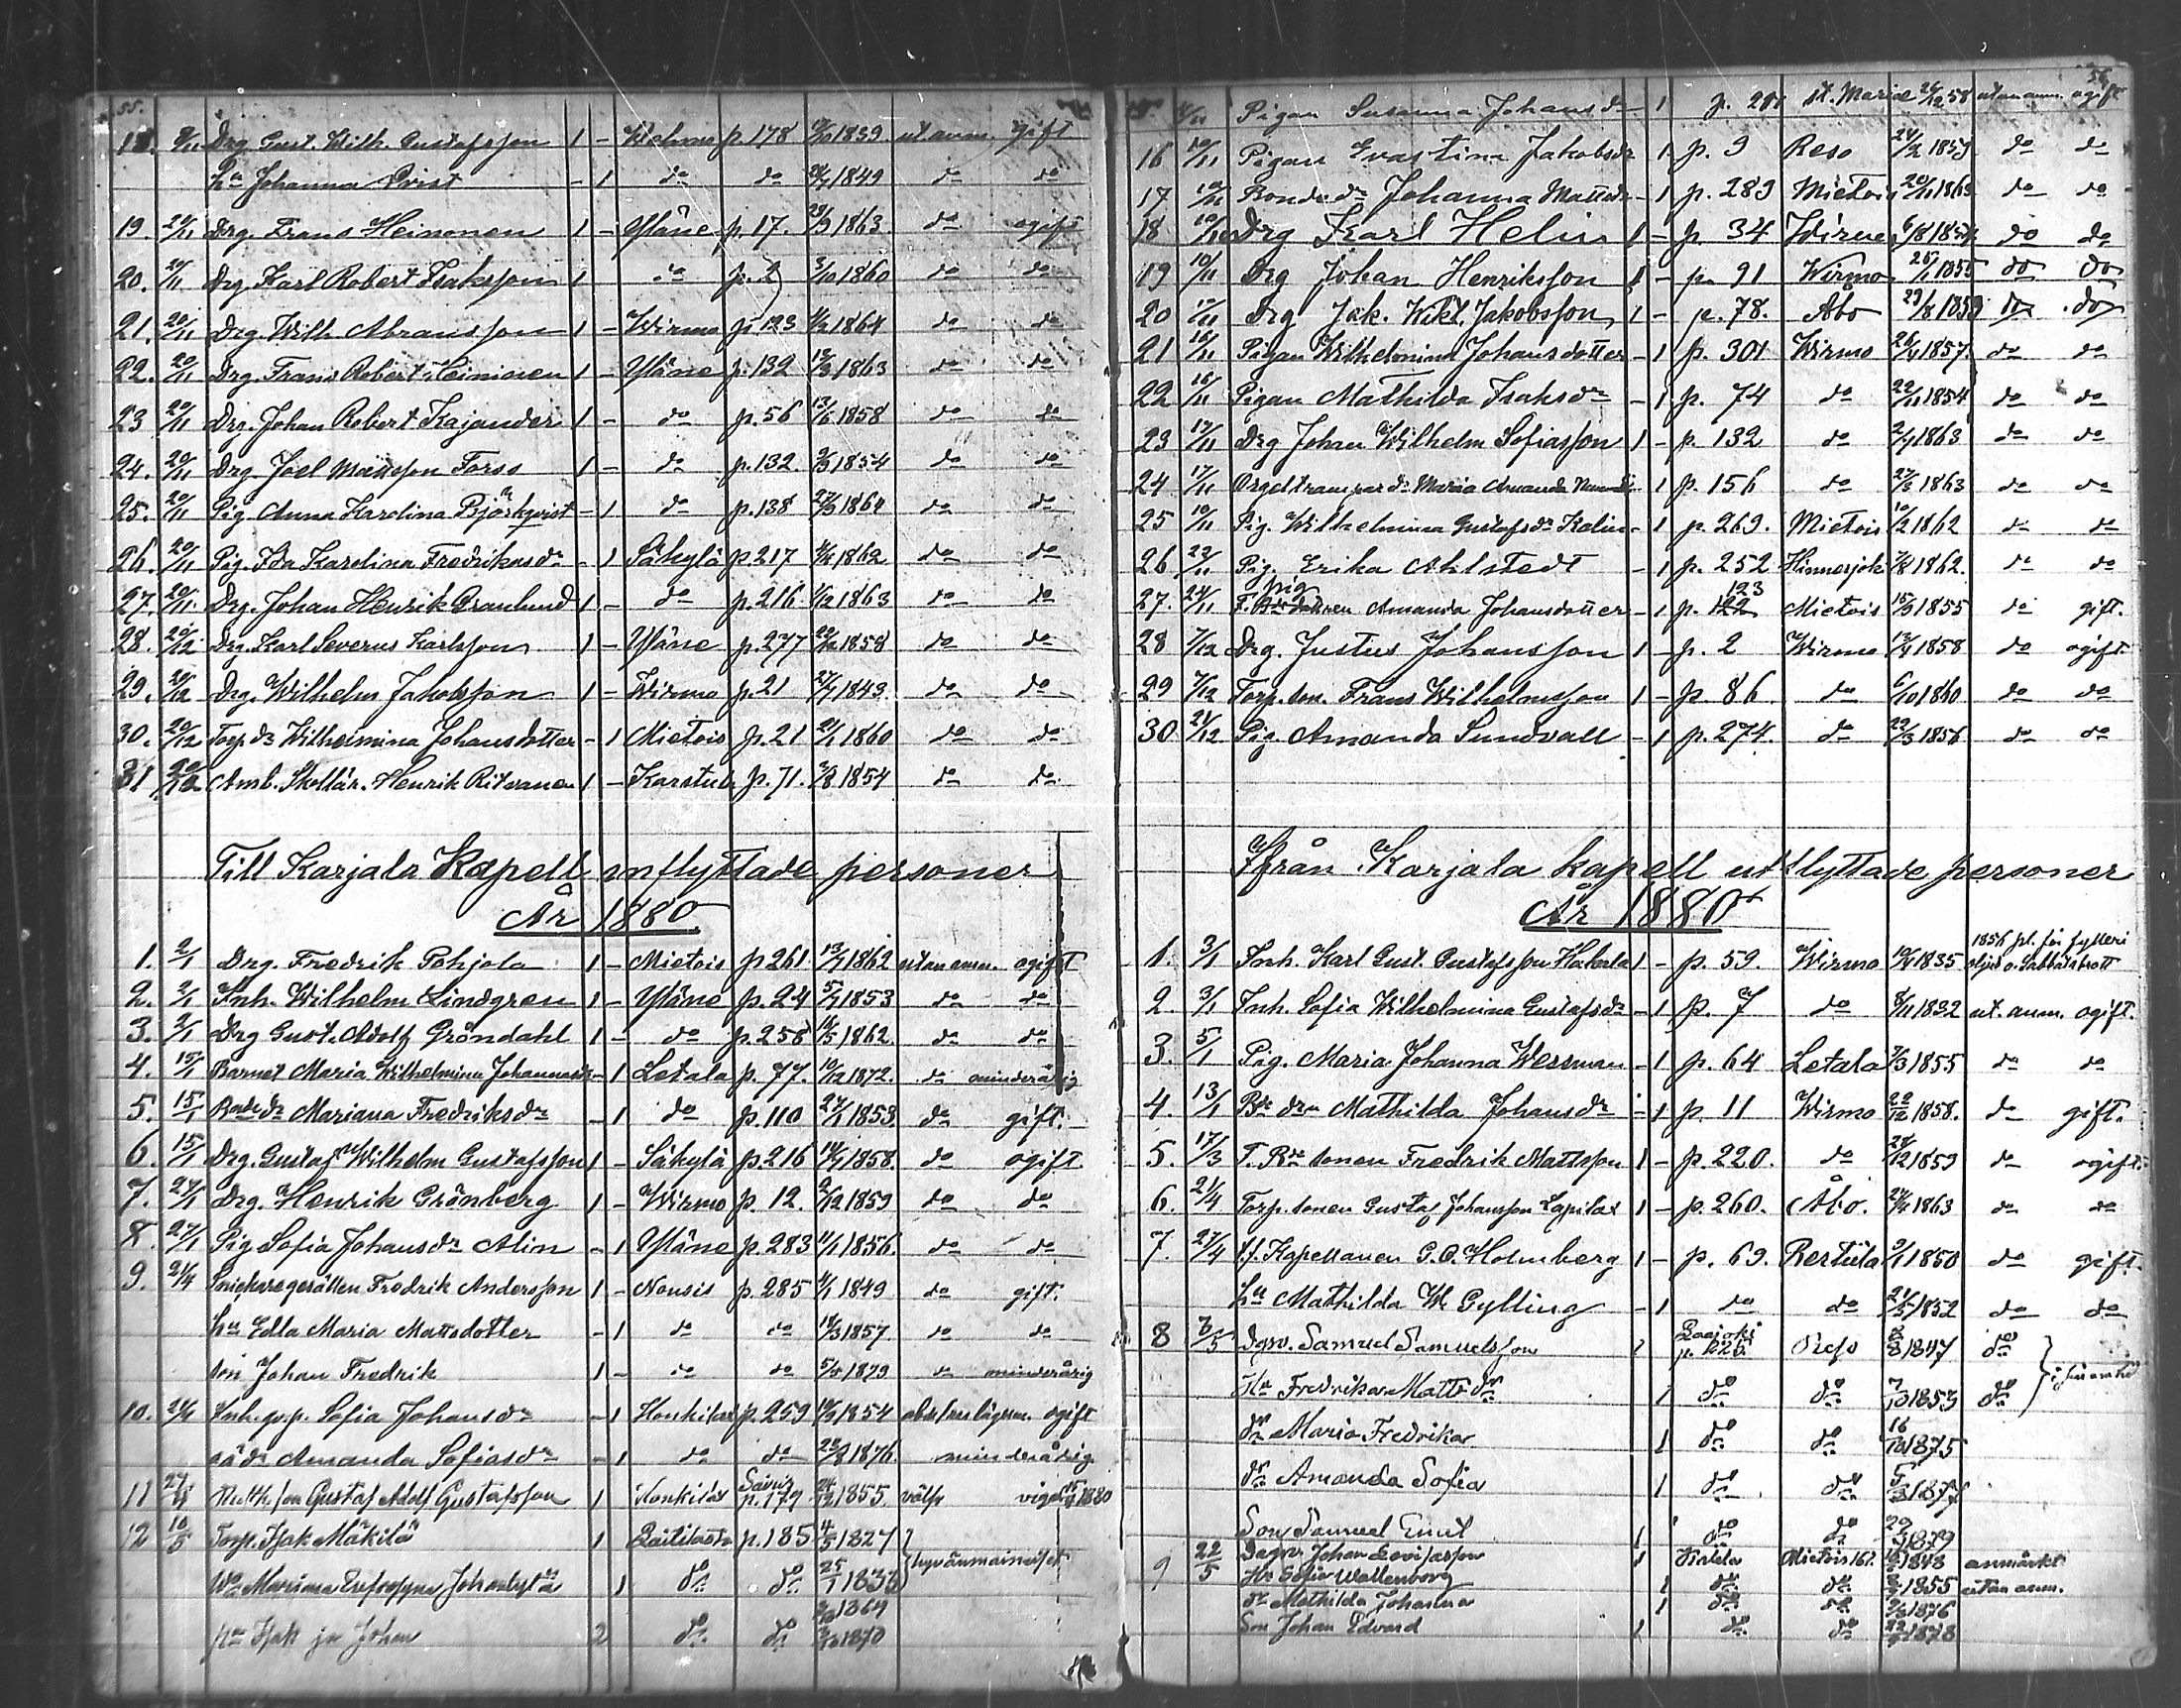 55.
18. 8/11 Drg. Gust. Wilh. Gustafsson 1 - p. 178 1839 ut. anm. gift
Hu Johanna Qvist - 1 do do 1849 do do
19. 20/11 Drg. Frans Heinonen 1 - Yläne p. 17. 23/9 1863. do ogift
20. 20/11 Drg. Karl Robert Isaksson 1 do p. 2 3/10 1860 do do
21. 20/11 Drg. Wilh. Abramsson 1 - Wirmo p. 123 1864 do do
22. 20/11 Drg. Frans Robert Heinonen 1 - Yläne p. 132 12/3 1863 do do
23 20/11 Drg. Johan Robert Kajander 1 - do p. 56 13/6 1858 do do
24. 20/11 Drg. Joel Mattsson Forss 1 - do p. 132. 1854 do do
25. 20/11 Pig. Anna Karolina Björkqvist - 1 do p. 138 1864 do do
26. 20/11 Pig. Ida Karolina Fredrikasdr - 1 Säkylä p. 217 1862 do do
27. 20/11 Drg. Johan Henrik Granlund 1 - do p. 216 1/12 1863 do do
28. 20/12 Drg. Karl Severus Karlsson 1 - Yläne p. 277 1858 do do
29. 20/12 Drg. Wilhelm Jakobsson 1 - Wirmo p. 21 27/7 1843. do do
30. 20/12 Torp. dr Wilhelmina Johansdotter - 1 Mietois p. 21 21/1 1860 do do
31 20/12 Amb. Skollär. Henrik Ritvanen 1 - Karstula p. 71. 3/8 1854 do do
Till Karjala Kapell inflyttade personer
År 1880.
1. 2/1 Drg. Fredrik Pohjola 1 - Mietois p. 261 13/7 1862 utan anm. ogift
2. 2/1 Inh. Wilhelm Lindgren 1 - Yläne p. 24 5/7 1853 do do
3. 2/1 Drg Gust. Adolf Gröndahl 1 - do p. 258 16/5 1862 do do
4. 15/1 Barnet Maria Wilhelmina Johannasdr - 1 Letala p. 77. 10/12 1872. do minderårig
5. 15/1 Bonde dr Mariana Fredriksdr - 1 do p. 110 27/1 1853 do gift.
6. 15/1 Drg. Gustaf Wilhelm Gustafsson 1 - Säkylä p. 216 14/7 1858 do ogift.
7. 27/1 Drg. Henrik Grönberg 1 - Wirmo p. 12. 2/12 1859 do do
8. 27/1 Pig Sofia Johansdr Alin - 1 Yläne p. 283 11/1 1856. do do
9. 21/4 Snickaregesällen Fredrik Andersson 1 - Nousis p. 285 4/1 1849 do gift.
Hu Edla Maria Mattsdotter - 1 do do 14/3 1857 do do
son Johan Fredrik 1 - do do 1879 do minderårig
10. 24/4 Inh. qv. p. Sofia Johansdr - 1 Honkilax p. 259 1854 ogift
oä dr Amanda Sofiasdr - 1 do do 1876. minderårig
11 27/4 Gustaf Adolf Gustafsson 1 Honkilax p. 179 24/12 1855. välfr vigd 1880
12 10/5 Torp. Isak Mäkilä 1 p. 185 4/5 1827
Mariana Eufrosyna 1 do do 25/1 1833 hyvänmaineiset
Isak ja Johan 2 do do 1864 1870
56
4/11 Pigan Susanna Johansdr - 1 p. 281 St. Mariæ 26/12 58 utan anm. ogift
16 10/11 Pigan Evastina Jakobsdr - 1 p. 9 Reso 24/2 1859 do do
17 10/11 Bonde dr Johanna Mattsdr - 1 p. 283 Mietois 20/11 1863 do do
18 10/11 Drg Karl Helin 1 - p 34 Wirmo 6/8 1854 do do
19 10/11 Drg Johan Henriksson 1 - p. 91 Wirmo 25/1 1855 do do
20 Drg Jak. Wikt. Jakobsson 1 - p. 78. Åbo 29/8 1859 do do
21 16/11 Pigan Wilhelmina Johansdotter - 1 p. 301 Wirmo 26/4 1857. do do
22 16/11 Pigan Mathilda Isaksdr - 1 p. 74 do 22/11 1854 do do
23 17/11 Drg Johan Wilhelm Sofiasson 1 - p. 132 do 2/7 1863 do do
24 17/11 Orgeltrampar dr Maria Amanda - 1 p. 156 do 27/3 1863 do do
25 19/11 Pig. Wilhelmina Gustafsdr Kalin - 1 p. 269. Mietois 10/2 1862 do do
26 22/11 Pig. Erika Ahlstedt - 1 p. 252 Hinnerjoki 7/8 1862. do do
27. 24/11 pig Amanda Johansdotter - 1 p. 122 123 Mietois 15/9 1855 do gift.
28 7/12 Drg. Justus Johansson 1 - p. 2 Wirmo 13/4 1858 do ogift
29 7/12 Torp. son. Frans Wilhelmsson 1 - p. 86 do 6/10 1860 do do
30 21/12 Pig. Amanda Sundvall - 1 p. 274. do 23/3 1856 do do
Ifrån Karjala kapell utflyttade personer
År 1880
1. 3/1 Inh. Karl Gust. Gustafsson Hakala 1 - p. 59. Wirmo 1835 1856 pl. för fylleri oljud o. Sabbatsbrott
2. 3/1 Inh. Sofia Wilhelmina Gustafsdr - 1 p. 7 do 8/11 1832 ut. anm. ogift.
3. 5/1 Pig. Maria Johanna Wessman - 1 p. 64 Letala 7/3 1855 do do
4. 13/1 Bde dr Mathilda Johansdr - 1 p. 11 Wirmo 22/12 1858. do gift.
5. 17/3 T. Bde sonen Fredrik Mattsson 1 - p. 220. do 24/12 1859 do ogift.
6. 21/4 Torp. sonen Gustaf Johansson Lapilax 1 - p. 260. Åbo. 24/4 1863 do do
7. 27/4 t.f. Kapellanen G. A. Holmberg 1 - p. 69. Reståla 9/1 1850 do gift.
Hu Mathilda W. Gylling - 1 do do 21/5 1852 do do
8 7/5 Dgsv. Samuel Samuelsson 1 p. 226 Reso 2/8 1847 do
Hu Fredrika Mattsdr 1 do do 7/10 1853 do
dr Maria Fredrika 1 do do 16/10 1875
dr Amanda Sofia 1 do do 5/3 1877
Son Samuel Emil 1 do do 1879
9 22/5 Dagsv Johan Lovisasson 1 Mietois 161 1848 anmärkt
Hu Sofia Wallenborg 1 do do 1855 utan anm.
dr Mathilda Johanna 1 do do 1876
Son Johan Edvard 1 do do 1878